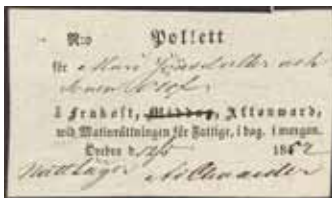 N:o Pollett
för Maria Jönsdotter och
å Frukost, Middag, Aftonward,
wid Matinrättningen för Fattige, i dag. i morgon.
Örebro d. 12/5 1862
Nattläger